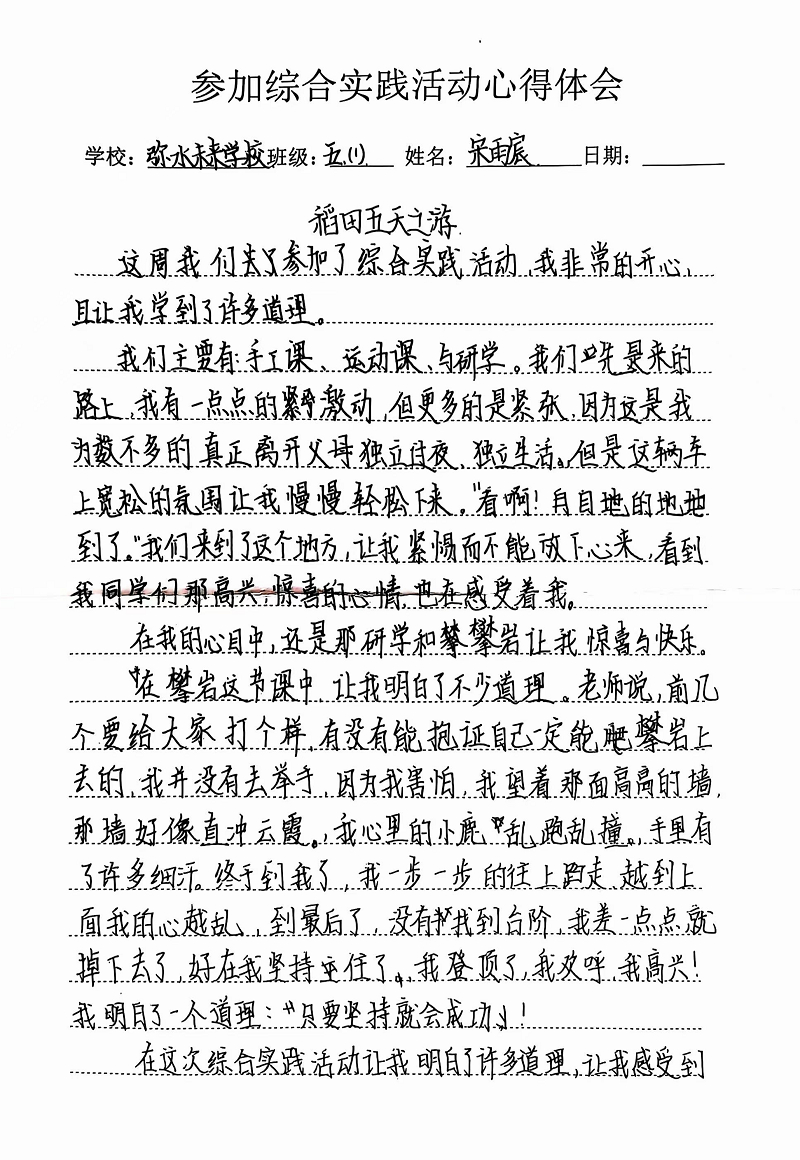 参加综合实践活动心得体会
学校：弥水未来学校班级：五.(1) 姓名：宋雨宸 日期：
稻田五天之游
这周我们去了参加了综合实践活动，我非常的开心，
且让我学到了许多道理。
我们主要有：手工课、运动课、与研学。我们先是来的
路上，我有一点点的紧激动，但更多的是紧张，因为这是我
为数不多的真正离开父母独立过夜，独立生活。但是这辆车
上宽松的氛围让我慢慢轻松下来。“看啊！自自地的地地
到了。”我们来到了这个地方，让我紧惕而不能放下心来，看到
我同学们那高兴，惊喜的心情，也在感受着我。
在我的心目中，还是那研学和攀岩让我惊喜与快乐。
“在攀岩这节课中，让我明白了不少道理。老师说，前几
个要给大家打个样，有没有能抱证自己一定能攀岩上
去的，我并没有去举手，因为我害怕，我望着那面高高的墙，
那墙好像直冲云霞。，我心里的小鹿乱跑乱撞。，手里有
了许多细汗。终于到我了，我一步一步的往上跑走、越到上
面我的心越乱、，到最后了，没有找到台阶，我差一点点就
掉下去了，好在我坚持住了，我登顶了，我欢呼，我高兴！
我明白了一个道理：“只要坚持就会成功”！
在这次综合实践活动让我明白了许多道理，让我感受到